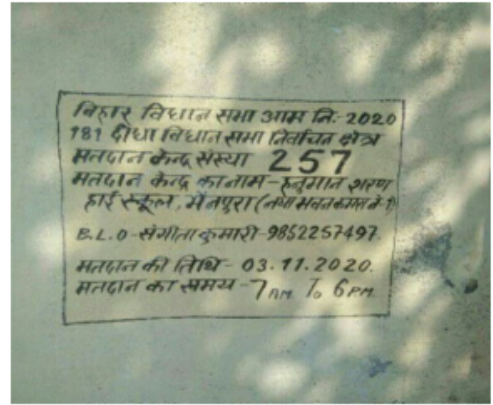 बिहार विधान सभा आम नि.-2020
181 दीघा विधान सभा निर्वाचन क्षेत्र
मतदान केन्द्र संख्या 257
मतदान केन्द्र का नाम-हनुमान शरण
हाई स्कूल, मैनपुरा (नया भवन कमरा नं-1)
B.L.O-संगीता कुमारी-9852257497.
मतदान की तिथि-03.11.2020.
मतदान का समय-7AM To 6PM